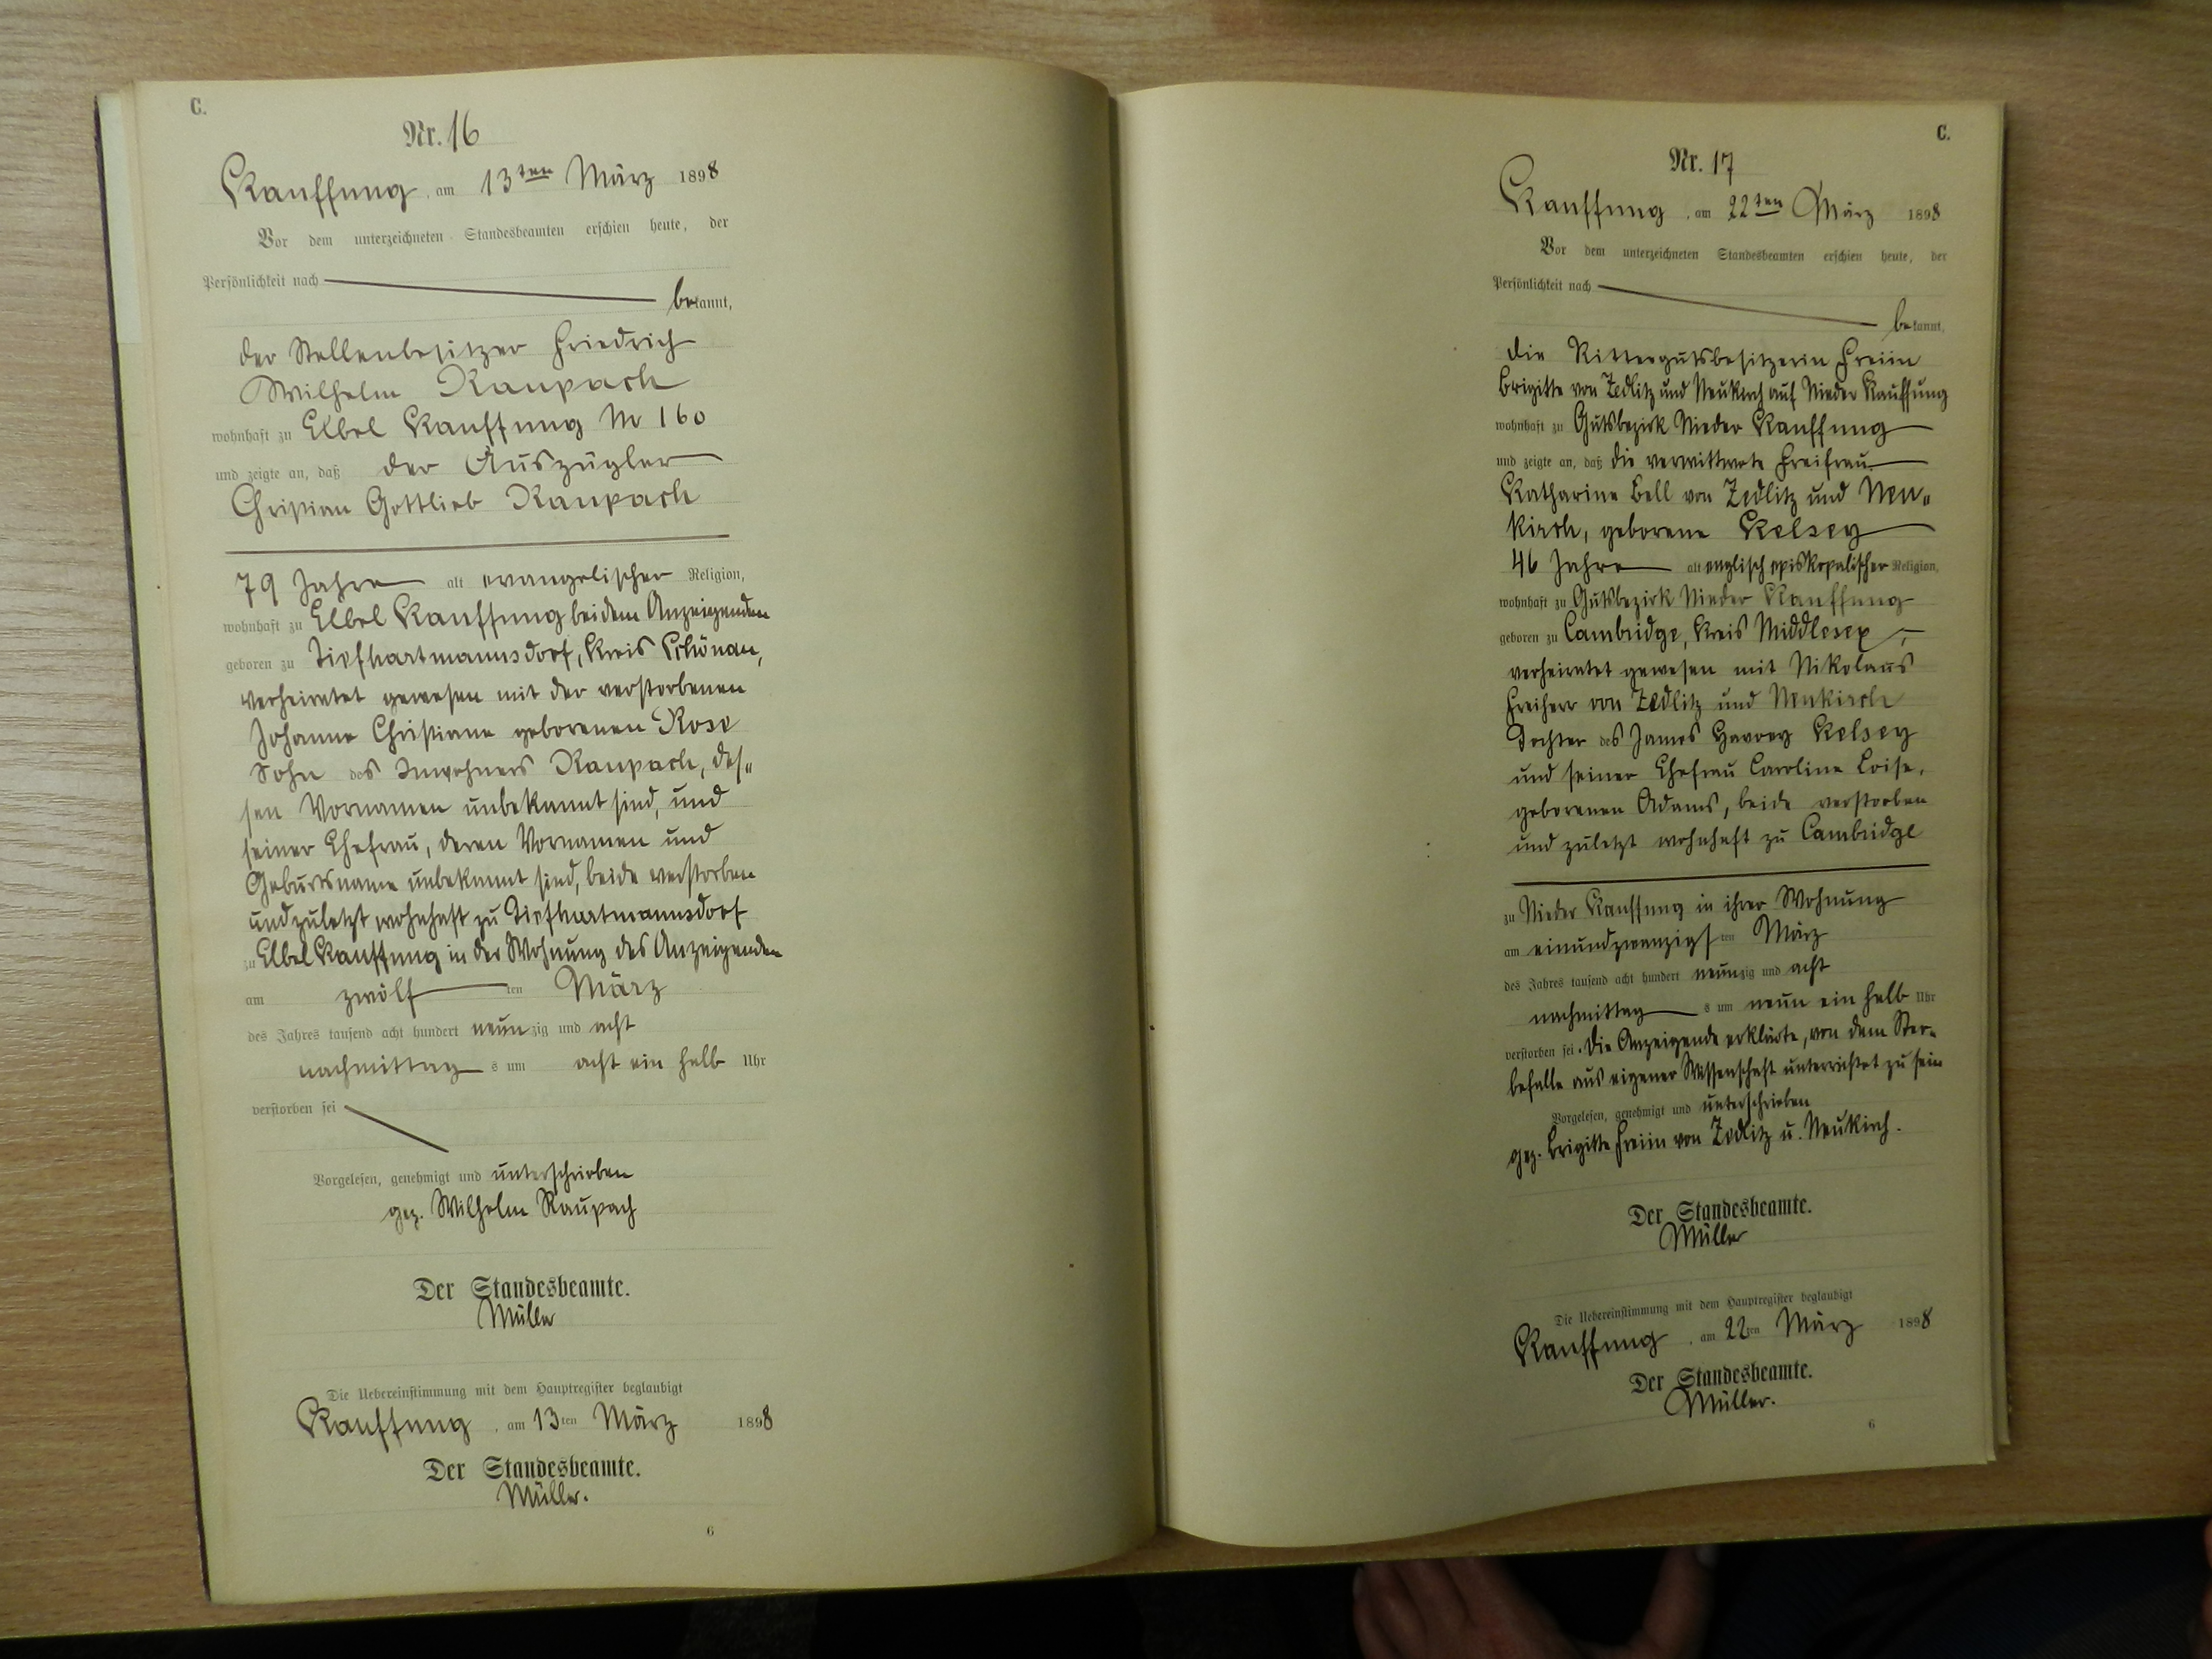 C.
Nr. 16
Kauffung, am 13ten März 1898
Vor dem unterzeichneten Standesbeamten erschien heute, der
Persönlichkeit nach
bekannt,
der Stellenbesitzer Friedrich
Wilhelm Raupach
wohnhaft zu Elbel Kauffung No 160
und zeigte an, daß der Auszügler
Christian Gottlieb Raupach
79 Jahre alt evangelischer Religion,
wohnhaft zu Elbel Kauffung bei dem Anzeigenden
geboren zu Tiefhartmannsdorf, Kreis Schönau,
verheiratet gewesen mit der verstorbenen
Johanne Christiane geborenen Rose
Sohn des Inwohners Raupach, des„
sen Vornamen unbekannt sind, und
seiner Ehefrau, deren Vornamen und
Geburtsname unbekannt sind, beide verstorben
und zuletzt wohnhaft zu Tiefhartmannsdorf
zu Elbel Kauffung in der Wohnung des Anzeigenden
am zwölften März
des Jahres tausend acht hundert neunzig und acht
nachmittags um acht ein halb Uhr
verstorben sei
Vorgelesen, genehmigt und unterschrieben
gez. Wilhelm Raupach
Der Standesbeamte.
Müller
Die Uebereinstimmung mit dem Hauptregister beglaubigt
Kauffung, am 13ten März 1898
Der Standesbeamte.
Müller.
6
C.
Nr. 17
Kauffung, am 22ten März 1898
Vor dem unterzeichneten Standesbeamten erschien heute, der
Persönlichkeit nach
bekannt,
die Rittergutsbesitzerin Freiin
Brigitte von Zedlitz und Neukirch auf Nieder Kauffung
wohnhaft zu Gutsbezirk Nieder Kauffung
und zeigte an, daß die verwittwete Freifrau
Katharine Bell von Zedlitz und Neu„
kirch, geborene Kelsey
46 Jahre alt englisch episkopalischer Religion,
wohnhaft zu Gutsbezirk Nieder Kauffung
geboren zu Cambridge, Kreis Middlesex,
verheiratet gewesen mit Nikolaus
Freiherr von Zedlitz und Neukirch
Tochter des James Harvey Kelsey
und seiner Ehefrau Caroline Loise,
geborenen Adams, beide verstorben
und zuletzt wohnhaft zu Cambridge
zu Nieder Kauffung in ihrer Wohnung
am einundzwanzigsten März
des Jahres tausend acht hundert neunzig und acht
nachmittags um neun ein halb Uhr
verstorben sei. Die Anzeigende erklärte, von dem Ster-
befalle aus eigener Wissenschaft unterrichtet zu sein
Vorgelesen, genehmigt und unterschrieben
gez. Brigitte Freiin von Zedlitz u. Neukirch.
Der Standesbeamte.
Müller
Die Uebereinstimmung mit dem Hauptregister beglaubigt
Kauffung, am 22ten März 1898
Der Standesbeamte.
Müller.
6